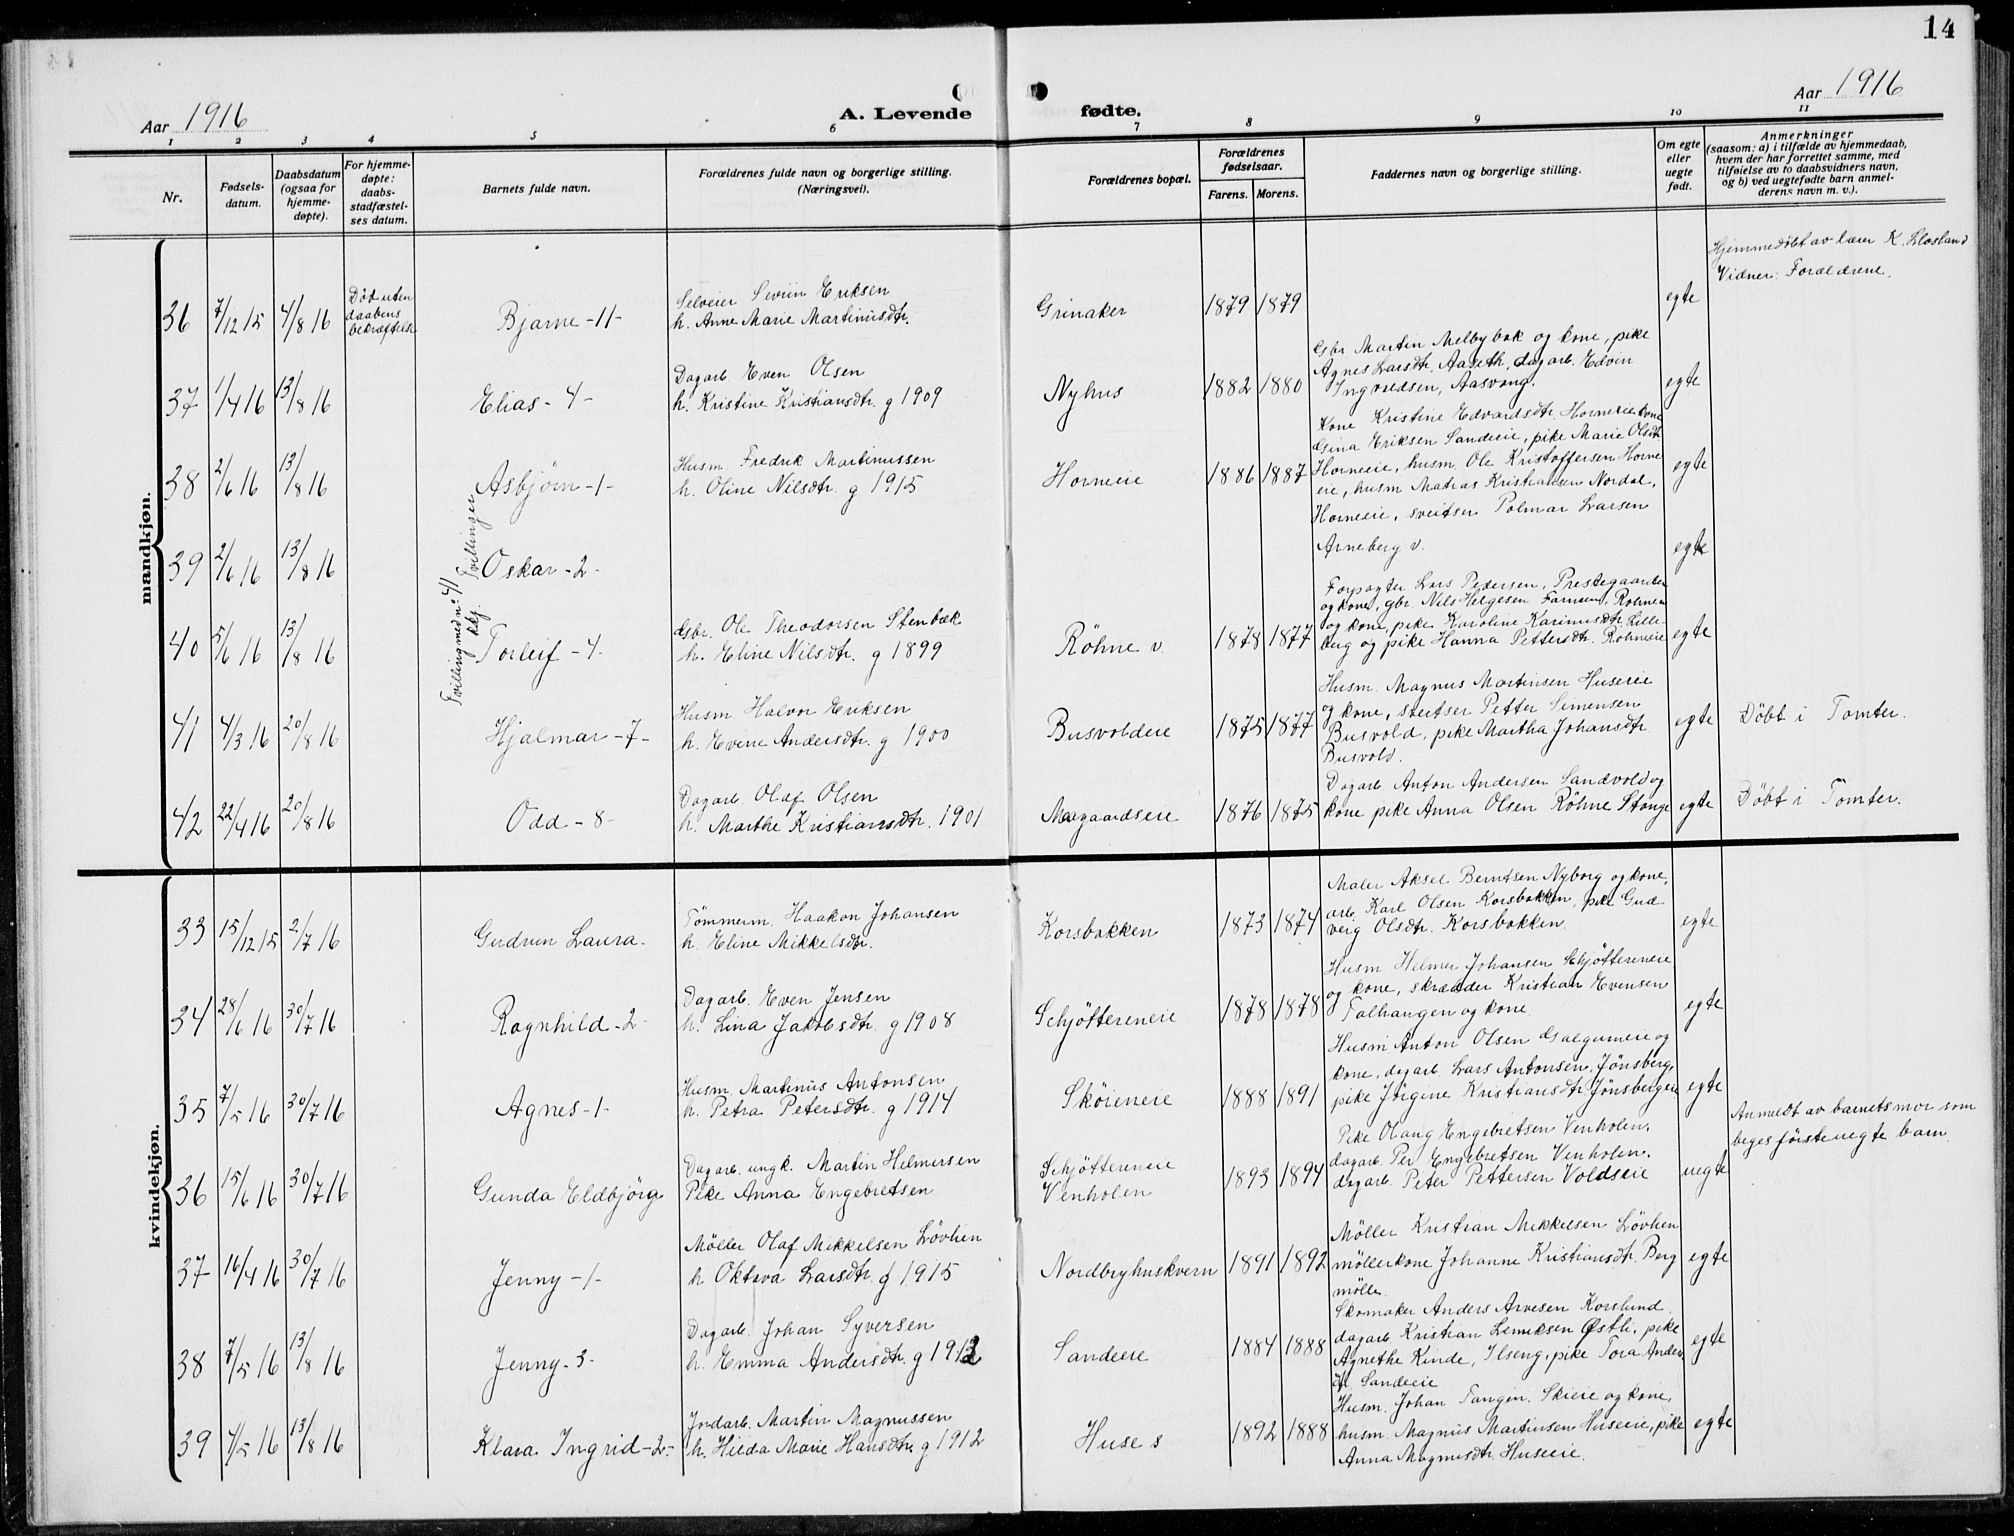 14
Aar 1916
A. Levende fødte.
Aar 1916
1 2 3 4 5 6 7 8 9 10 11
Nr.
Fødsels-
datum.
Daabsdatum
(ogsaa for
hjemme-
døpte).
For hjemme-
døpte:
daabs-
stadfæstel-
ses datum.
Barnets fulde navn.
Forældrenes fulde navn og borgerlige stilling.
(Næringsvei).
Forældrenes bopæl.
Forældrenes
fødselsaar.
Farens. Morens.
Faddernes navn og borgerlige stilling.
Om egte
eller
uegte
født.
Anmerkninger
(saasom: a) i tilfælde av hjemmedaab,
hvem der har forrettet samme, med
tilføielse av to daabsvidners navn,
og b) ved uegtefødte barn anmel-
derens navn m. v.).
mandkjøn.
36 7/12 15 4/8 16
Død uten
daabens
bekræftelse
Bjarne -11-
Selveier Severin Eriksen
h. Anne Marie Martinusdtr.
Grinaker 1879 1879 egte
Hjemmedøbt av lærer K.
Vidner: Forældrene.
37 1/4 16 13/8 16
Elias -4-
Dagarb. Even Olsen
h. Kristine Kristiansdtr. g 1909
Nyhus 1882 1880
Gbr. Martin Melbybak og kone, pike
Agnes Larsdtr. Aaseth, dagarb. Edvin
Ingvaldsen, Aasvang.
egte
38 2/6 16 13/8 16
Asbjørn -1-
Tvillinger
Husm. Fredrik Martinussen
h. Oline Nilsdtr. g 1915
Horneeie 1886 1887
Kone Kristine Edvardsdtr. Horneeie kone
Gina Eriksen Sandeeie, pike Marie Olsdtr
Horneeie, husm. Ole Kristoffersen Horne
eie, husm Matias Kristiansen Nordal,
Horneeie, sveitser Polmar Larsen
Arneberg v.
egte
39 2/6 16 13/8 16
Oskar -2-
egte
40 5/6 16 13/8 16
Tvilling med no 41
kkj.
Torleif -4-
Gbr. Ole Theodorsen Stenbæk
h. Eline Nilsdtr. g 1899
Røhne v. 1878 1877
Forpagter Lars Pedersen, Prestegaarden
og kone, gbr. Nils Helgesen Røhnen
og kone, pike Karoline Karinusdtr. Lille
berg og pike Hanna Pettersdtr. Røhneeie
egte
41 4/3 16 20/8 16
Hjalmar -7-
Husm Halvor Eriksen
h. Evine Andersdtr. g 1900
Busvoldeie 1875 1877
Husm. Magnus Martinsen Huseeie
og kone, sveitser Petter Simensen
Busvold, pike Martha Johansdtr
Busvold.
egte
Døbt i Tomter.
42 22/4 16 20/8 16
Odd -8-
Dagarb. Olaf Olsen
h. Marthe Kristiansdtr. 1901
Mogaardseie 1876 1875
Dagarb. Anton Andersen Sandvold og
kone pike Anna Olsen Røhne Stange
egte
Døbt i Tomter.
kvindekjøn.
33 15/12 15 2/7 16
Gudrun Laura.
Tømmerm. Haakon Johansen
h. Eline Mikkelsdtr.
Korsbakken 1873 1874
Maler Aksel Berntsen Nyborg og kone,
arb. Karl Olsen Korsbakken, pike Gud
veig Olsdtr. Korsbakken
egte
34 28/6 16 30/7 16
Ragnhild -2-
Dagarb. Even Jensen
h. Lina Jakobsdtr. g 1908
Schjøttereneie 1878 1878
Husm Helmer Johansen Schjøttereneie
og kone, skrædder Kristian Evensen
Talhaugen og kone.
egte
35 7/5 16 30/7 16
Agnes -1-
Husm. Martinus Antonsen
h. Petra Petersdtr. g 1914
Skøieneie 1888 1891
Husm Anton Olsen Galgumeie og
kone, dagarb. Lars Antonsen, Jønsberg,
pike Jørgine Kristiansdtr. Jønsbergeie
egte
36 15/6 16 30/7 16
Gunda Eldbjørg
Dagarb. ungk. Martin Helmersen
Pike Anna Engebretsen
Schjøttereneie
Venholen
1893 1894
Pike Olaug Engebretsen Venholen,
dagarb. Per Engebretsen Venholen,
dagarb. Peter Pettersen Voldseie
uegte
Anmeldt av barnets mor som
beges første uegte barn.
37 16/4 16 30/7 16
Jenny -1-
Møller Olaf Mikkelsen Løvlien
h Oktava Larsdtr. g 1915
Nordbryhnskvern 1891 1892
Møller Kristian Mikkelsen Løvlien
møllerkone Johanne Kristiansdtr. Berg
mølle.
egte
38 7/5 16 13/8 16
Jenny -3-
Dagarb. Johan Syversen
h. Emma Andersdtr. g 1912
Sandeeie 1884 1888
Skomaker Anders Arvesen Korslund,
dagarb Kristian Østli, pike
Agnethe Kinde, Ilseng, pike Tora Anders
dtr. Sandeeie
egte
39 1/5 16 13/8 16
Klara Ingrid -2-
Jordarb. Martin Magnussen
h. Hilda Marie Hansdtr. g 1912
Huse s 1892 1888
Husm. Johan Tangen, Skieie og kone,
husm. Magnus Martinsen Huseeie, pike
Anna Magnusdtr. Huseeie.
egte